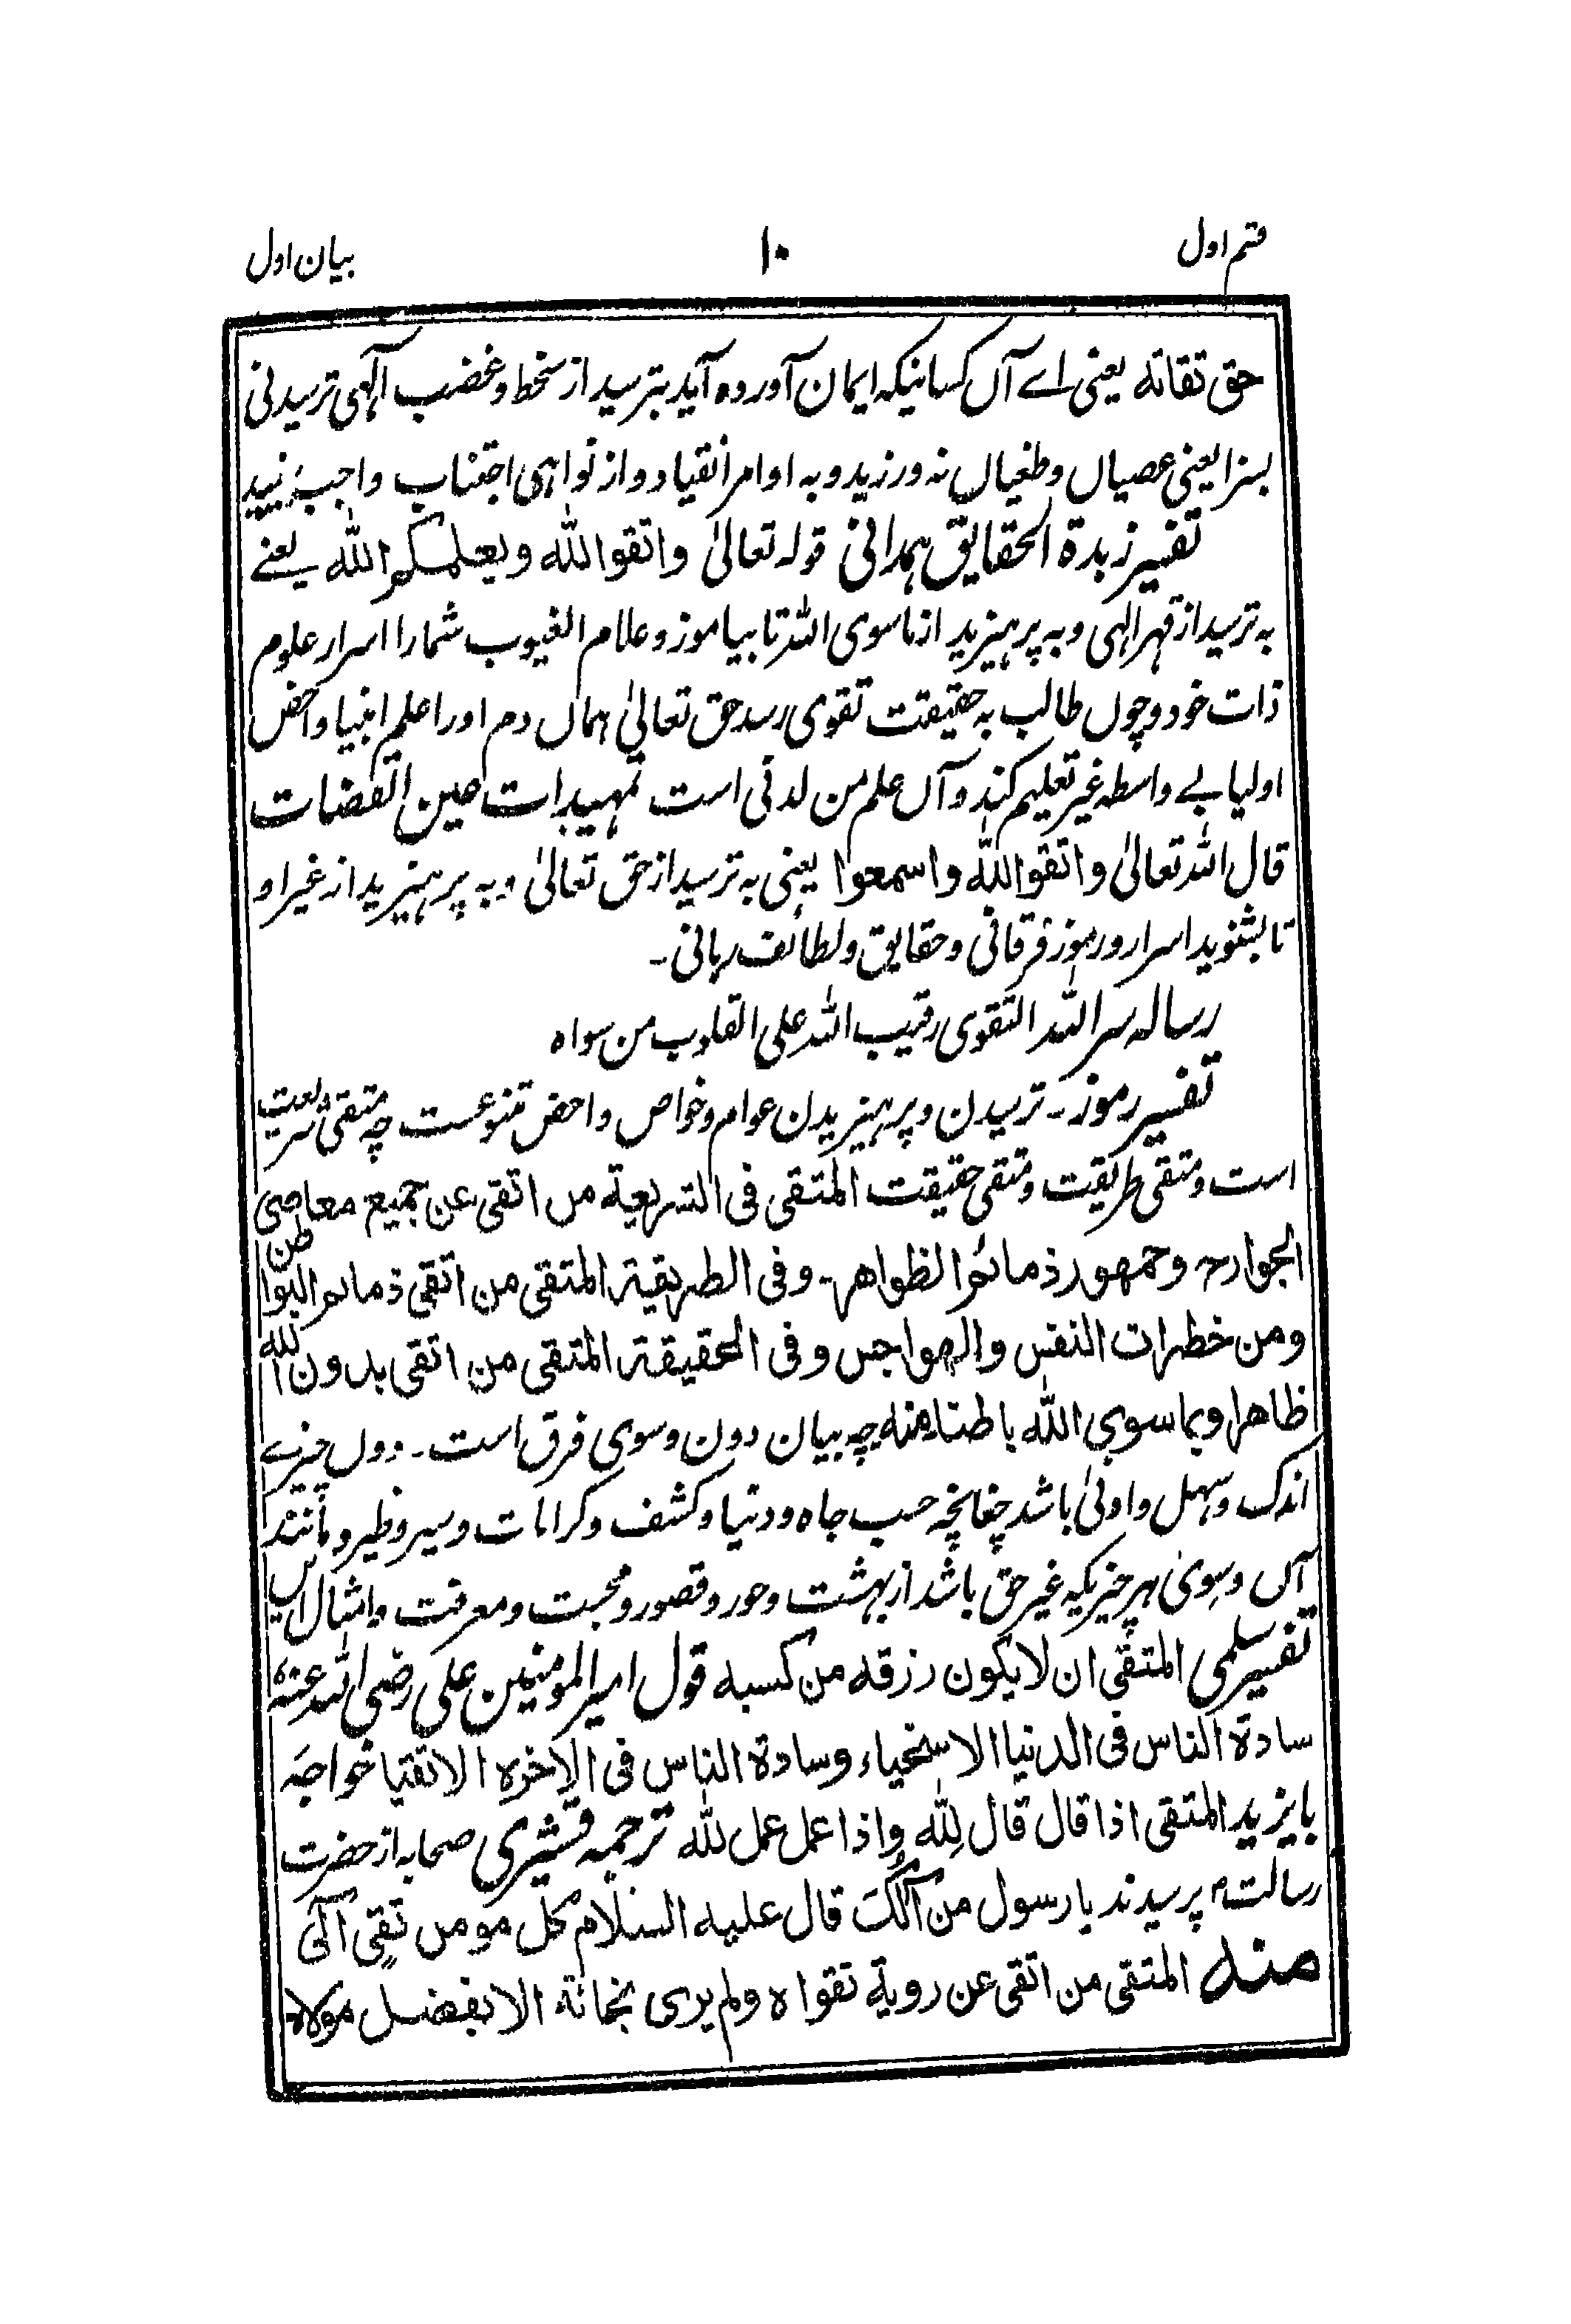 قسم اول
۱۰
بیان اول
حق تقاته یعنی اے آں کسانیکہ ایمان آوردہ آید بترسید از سخط و غضب آلٰهی ترسیدنی
بسزا یعنی عصیاں و طغیاں نہ ورزید و بہ اوامر انقیاد و از نواہی اجتناب واجب بینید
تفسیر زبدة الحقایق ہمدانی قولہ تعالیٰ واتقوا الله ویعلمکم الله یعنے
بہ ترسید از قہر الٰہی و بہ پرہیزید از ماسوی اللہ تا بیاموزد علام الغیوب شمارا اسرار علوم
ذات خود و چوں طالب بہ حقیقت تقوی رسد حق تعالیٰ ہماں دم اورا علم انبیا و اخص
اولیا بے واسطہ غیر تعلیم کند و آں علم من لدنی است تمہیدات عین القضات
قال اللہ تعالیٰ واتقوا الله واسمعوا یعنی بہ ترسید از حق تعالیٰ و بہ پرہیزید از غیر او
تا بشنوید اسرار و رموز فرقانی و حقایق و لطائف ربانی ۔
رسالہ سر اللہ التقوی رقیب اللہ علی القلوب من سواہ
تفسیر رموز ۔ ترسیدن و پرہیزیدن عوام و خواص و اخص متنوعست چہ متقی شریعت
است و متقی طریقت و متقی حقیقت المتقی فی الشریعة من اتقی عن جمیع معاصی
الجوارح وجمهور ذمائم الظواهر ۔ وفی الطریقیة المتقی من اتقی ذمائم البواطن
ومن خطرات النفس والهواجس وفی الحقیقة المتقی من اتقی بدون الله
ظاهرا وبما سوی الله باطنا منه چہ بیان دون و سوی فرق است ۔ دوں چیزے
اندک و سہل و اولیٰ باشد چنانچہ حب جاہ و دنیا و کشف و کرامات و سیر و طیر و مانند
آں و سوی ہر چیزیکہ غیر حق باشد از بہشت و حور و قصور و محبت و معرفت و امثال ایں
تفسیر سلمی المتقی ان لا یکون رزقه من کسبه قول امیر المومنین علی رضی اللہ عنہ
سادة الناس فی الدنیا الاسخیاء وسادة الناس فی الاخرہ الاتقیا خواجہ
بایزید المتقی اذا قال قال لله واذا عمل عمل لله ترجمہ قشیری صحابہ از حضرت
رسالتؐ پرسیدند یا رسول من آلک قال علیه السلام کل مومن تقی آلی
منه المتقی من اتقی عن رویة تقواہ ولم یری نجاته الا بفضل مولاہ